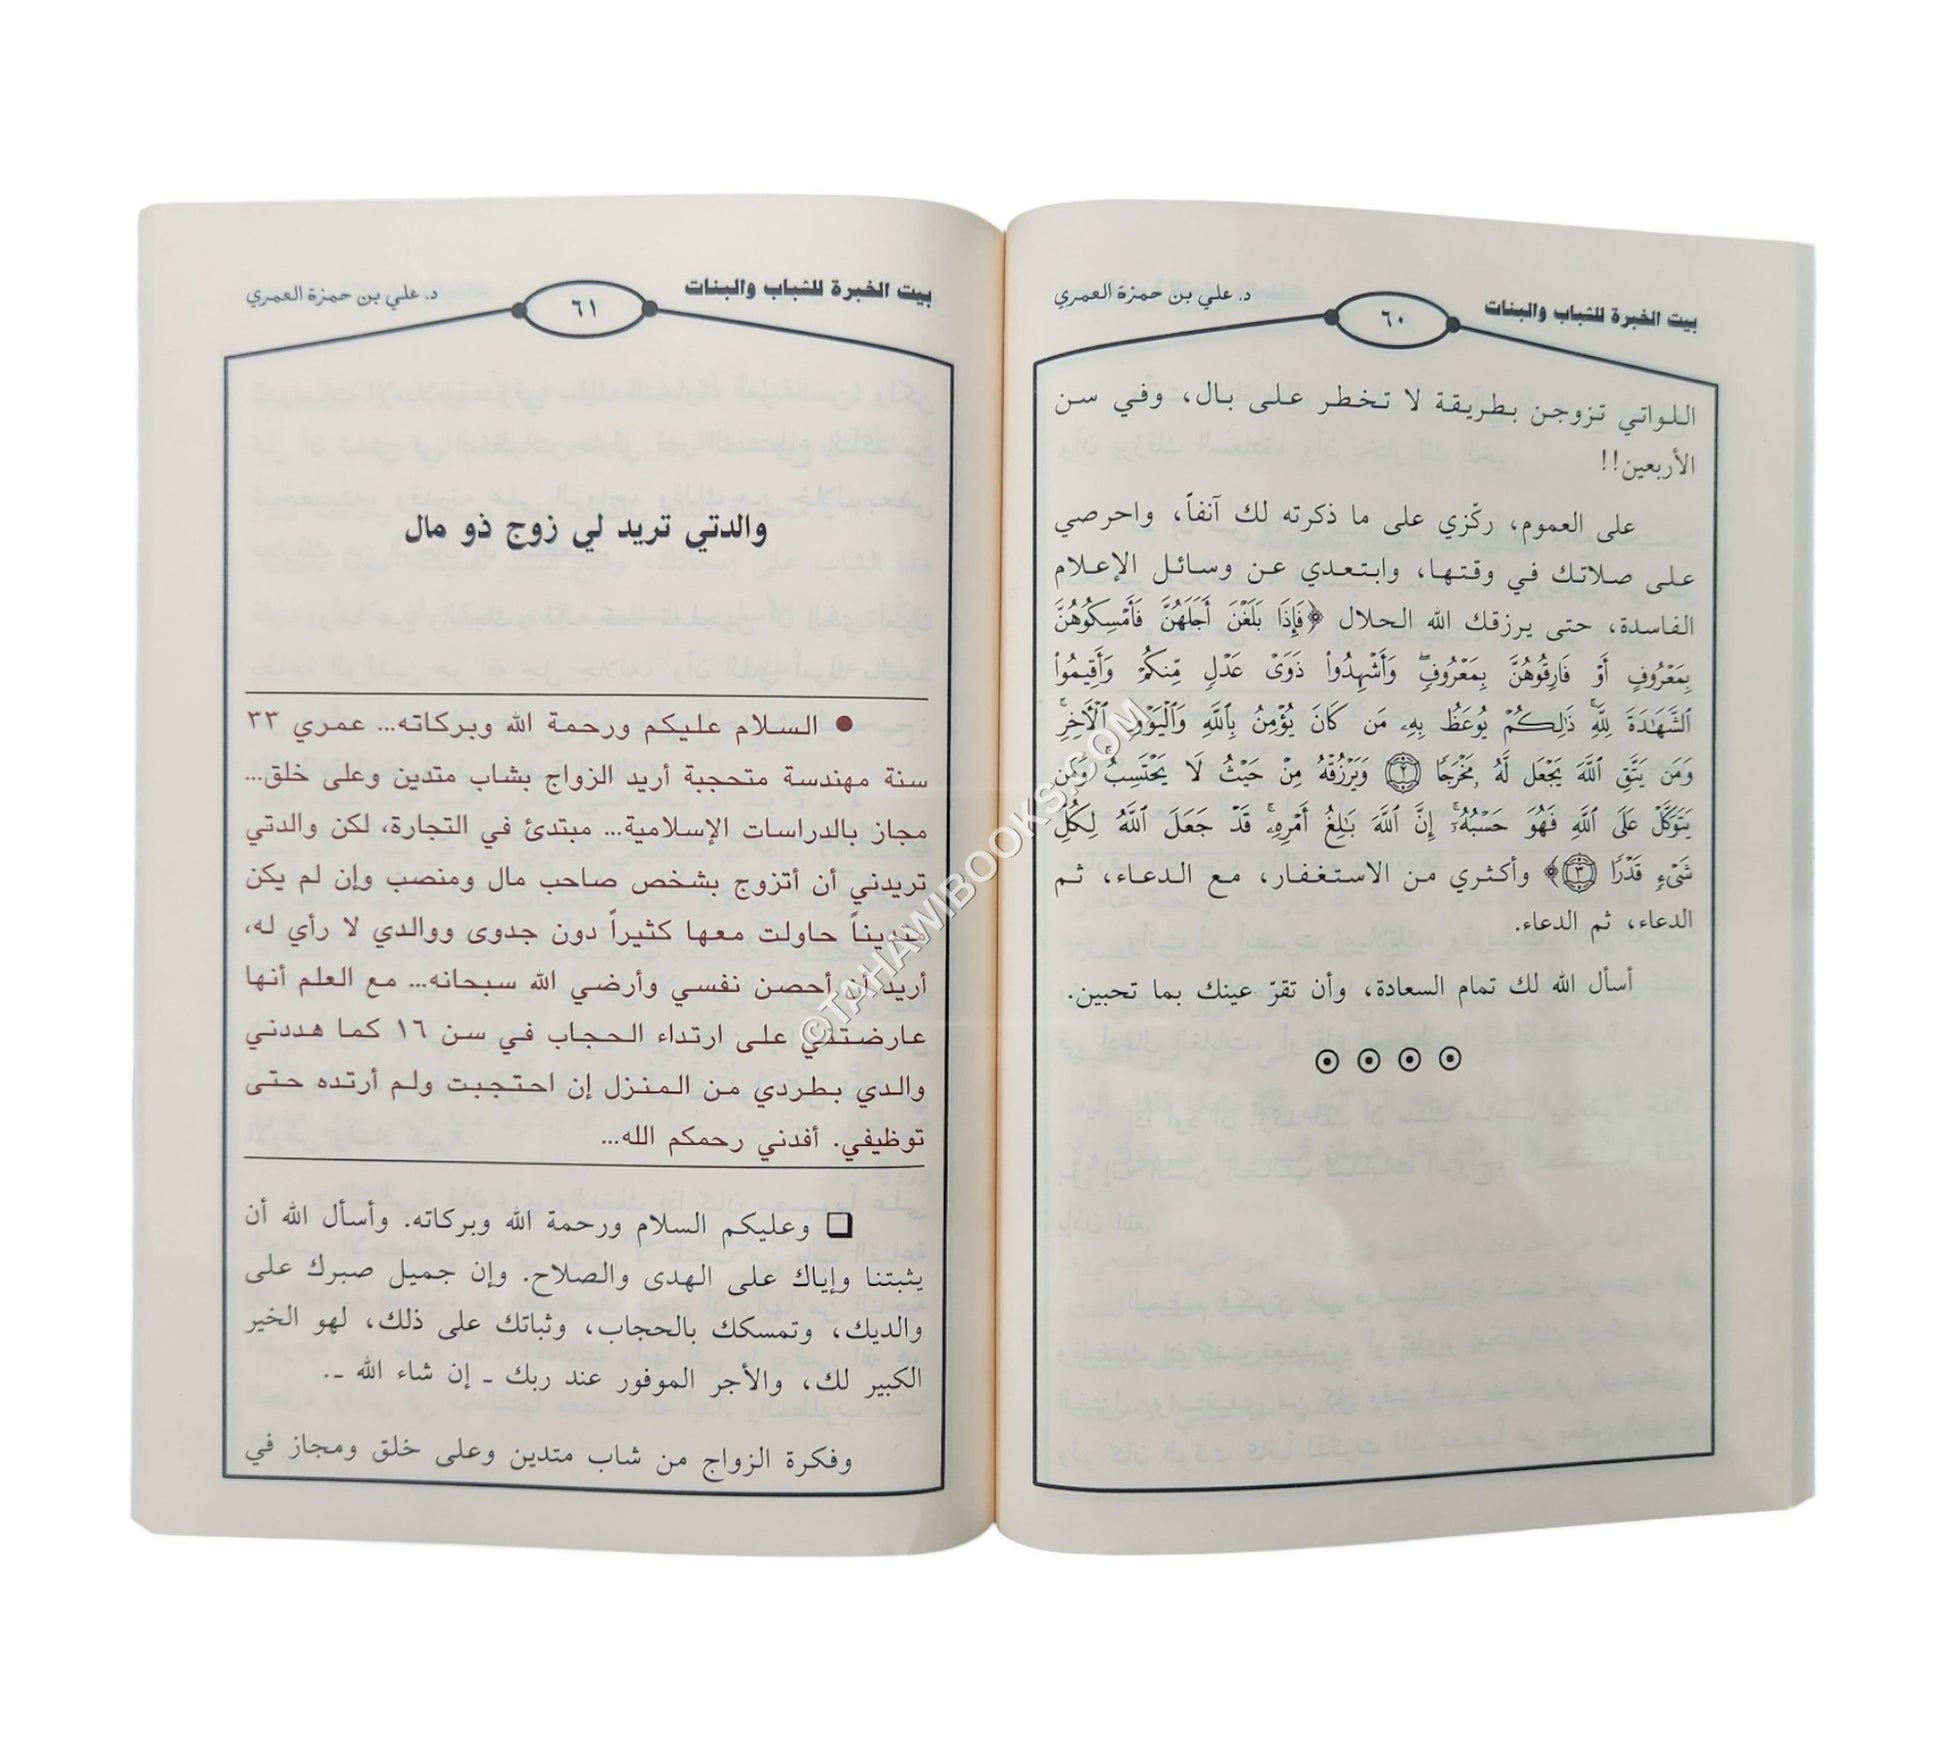 بيت الخبرة للشباب والبنات
٦٠
د. علي بن حمزة العمري
اللواتي تزوجن بطريقة لا تخطر على بال، وفي سن
الأربعين!!
على العموم، ركّزي على ما ذكرته لك آنفاً، واحرصي
على صلاتك في وقتها، وابتعدي عن وسائل الإعلام
الفاسدة، حتى يرزقك الله الحلال ﴿فَإِذَا بَلَغْنَ أَجَلَهُنَّ فَأَمْسِكُوهُنَّ
بِمَعْرُوفٍ أَوْ فَارِقُوهُنَّ بِمَعْرُوفٍ وَأَشْهِدُوا۟ ذَوَىْ عَدْلٍ مِّنكُمْ وَأَقِيمُوا۟
ٱلشَّهَٰدَةَ لِلَّهِ ۚ ذَٰلِكُمْ يُوعَظُ بِهِۦ مَن كَانَ يُؤْمِنُ بِٱللَّهِ وَٱلْيَوْمِ ٱلْـَٔاخِرِ ۚ
وَمَن يَتَّقِ ٱللَّهَ يَجْعَل لَّهُۥ مَخْرَجًا ٢ وَيَرْزُقْهُ مِنْ حَيْثُ لَا يَحْتَسِبُ ۚ وَمَن
يَتَوَكَّلْ عَلَى ٱللَّهِ فَهُوَ حَسْبُهُۥٓ ۚ إِنَّ ٱللَّهَ بَٰلِغُ أَمْرِهِۦ ۚ قَدْ جَعَلَ ٱللَّهُ لِكُلِّ
شَىْءٍ قَدْرًا ٣﴾ وأكثري من الاستغفار، مع الدعاء، ثم
الدعاء، ثم الدعاء.
أسأل الله لك تمام السعادة، وأن تقرّ عينك بما تحبين.
بيت الخبرة للشباب والبنات
٦١
د. علي بن حمزة العمري
والدتي تريد لي زوج ذو مال
● السلام عليكم ورحمة الله وبركاته... عمري ٣٣
سنة مهندسة متحجبة أريد الزواج بشاب متدين وعلى خلق...
مجاز بالدراسات الإسلامية... مبتدئ في التجارة، لكن والدتي
تريدني أن أتزوج بشخص صاحب مال ومنصب وإن لم يكن
متديناً حاولت معها كثيراً دون جدوى ووالدي لا رأي له،
أريد أن أحصن نفسي وأرضي الله سبحانه... مع العلم أنها
عارضتني على ارتداء الحجاب في سن ١٦ كما هددني
والدي بطردي من المنزل إن احتجبت ولم أرتده حتى
توظيفي. أفدني رحمكم الله...
❑ وعليكم السلام ورحمة الله وبركاته. وأسأل الله أن
يثبتنا وإياك على الهدى والصلاح. وإن جميل صبرك على
والديك، وتمسكك بالحجاب، وثباتك على ذلك، لهو الخير
الكبير لك، والأجر الموفور عند ربك ـ إن شاء الله ـ.
وفكرة الزواج من شاب متدين وعلى خلق ومجاز في
©TAHAWIBOOKS.COM